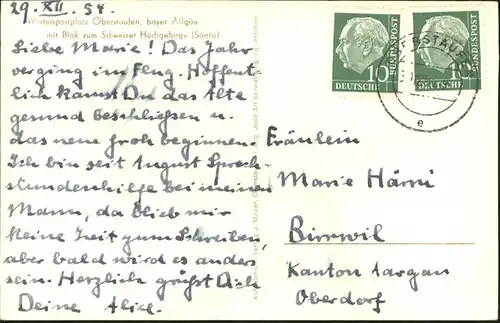 29. XII. 54.
Wintersportplatz Oberstaufen, bayer Allgäu
mit Blick zum Schweizer Hochgebirge (Säntis)
Liebe Marie! Das Jahr
verging im Flug. Hoffent-
lich kannst Du das Alte
gesund beschließen u.
das neue froh beginnen.
Ich bin seit August Sprech-
stundenhilfe bei meinem
Mann, da blieb mir
keine Zeit zum Schreiben,
aber bald wird es anders
sein. Herzlich grüßt Dich
Deine
DEUTSCHE BUNDESPOST 10
DEUTSCHE BUNDESPOST
e
Fräulein
Marie Härri
Birrwil
Kanton Aargau
Oberdorf